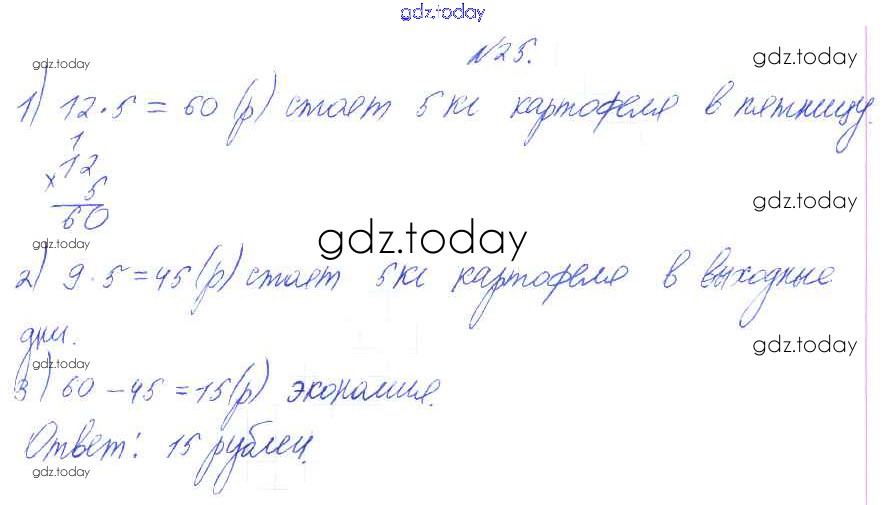 gdz.today
№25.
gdz.today gdz.today
1) 12·5 = 60 (р) стоит 5 кг картофеля в пятницу.
1
×12
5
60
gdz.today
gdz.today gdz.today
2) 9·5=45 (р) стоит 5кг картофеля в выходные
дни.
gdz.today
gdz.today
3) 60-45=15(р) экономия.
Ответ: 15 рублей.
gdz.today